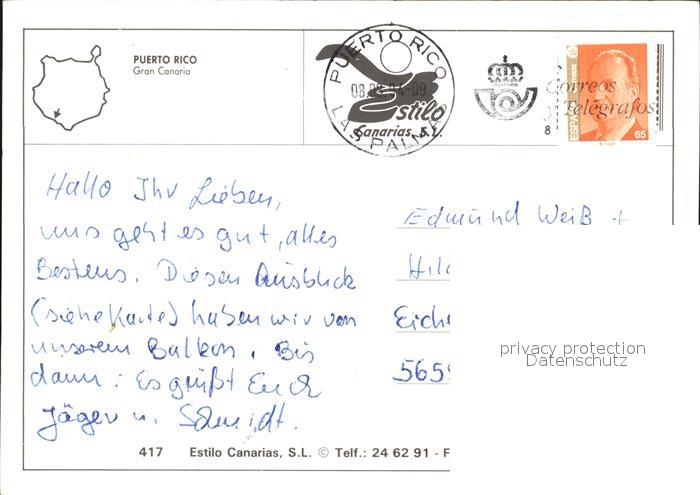 PUERTO RICO
Gran Canaria
PUERTO RICO
LAS PALMAS
Estilo
Canarias, S.L.
Correos
Telégrafos
8
ESPAÑA
65
Hallo Ihr Lieben,
uns geht es gut, alles
Bestens. Diesen Ausblick
(siehe Karte) haben wir von
unserem Balkon. Bis
dann: Es grüßt Euch
Jäger u. Schmidt.
Edmund Weiß +
Hil
Eich
565
privacy protection
Datenschutz
417 Estilo Canarias, S.L. © Telf.: 24 62 91 - F